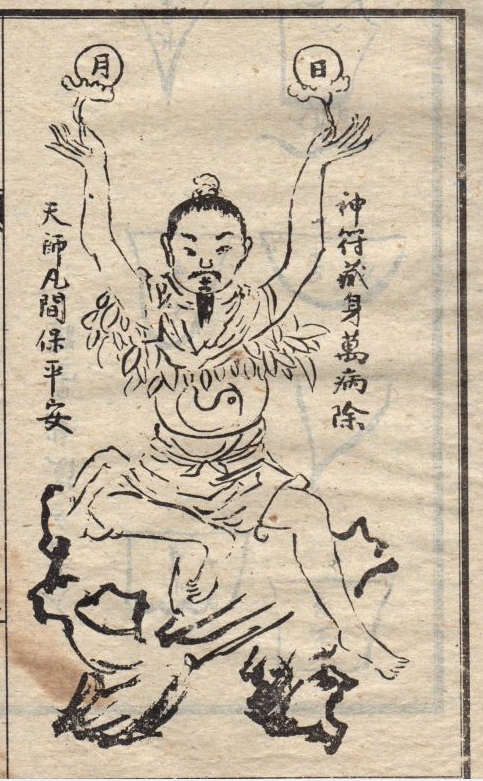 日
月
神符藏身萬病除
天師凡間保平安